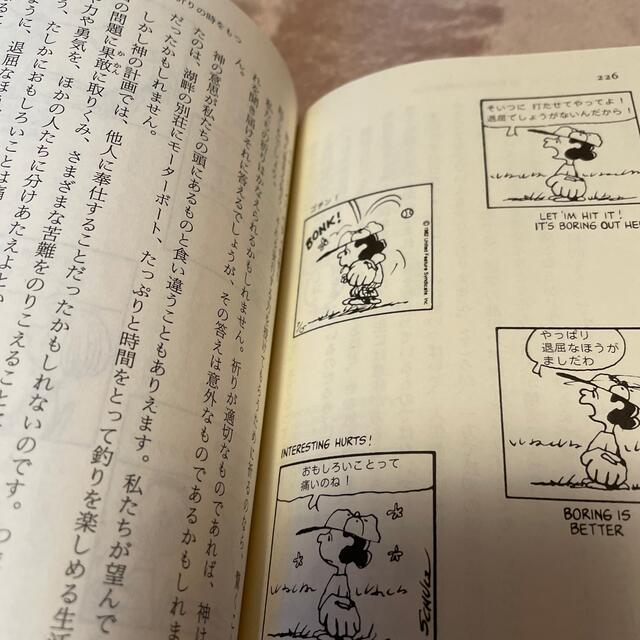 226
そいつに 打たせてやってよ！
退屈でしょうがないんだから！
LET 'IM HIT IT!
IT'S BORING OUT HE
ゴチン！
BONK!
© 1982 United Feature Syndicate, Inc.
やっぱり
退屈なほうが
ましだわ
BORING IS
BETTER
INTERESTING HURTS!
おもしろいことって
痛いのね！
SCHULZ
りの時をもつ
れを聞き届けそれに答えるでしょうが、その答えは意外なものであるかもしれま
ん。
神の意思が私たちの頭にあるものと食い違うこともありえます。私たちが望んで
たのは、湖畔の別荘にモーターボート、たっぷりと時間をとって釣りを楽しめる生活
だったかもしれません。
しかし神の計画では、他人に奉仕することだったかもしれないのです。
の問題に果敢に取りくみ、さまざまな苦難をのりこえること
かかん
力や勇気を、ほかの人たちに分けあたえよ
う、たしかにおもしろいことは痛
うに、退屈なほ